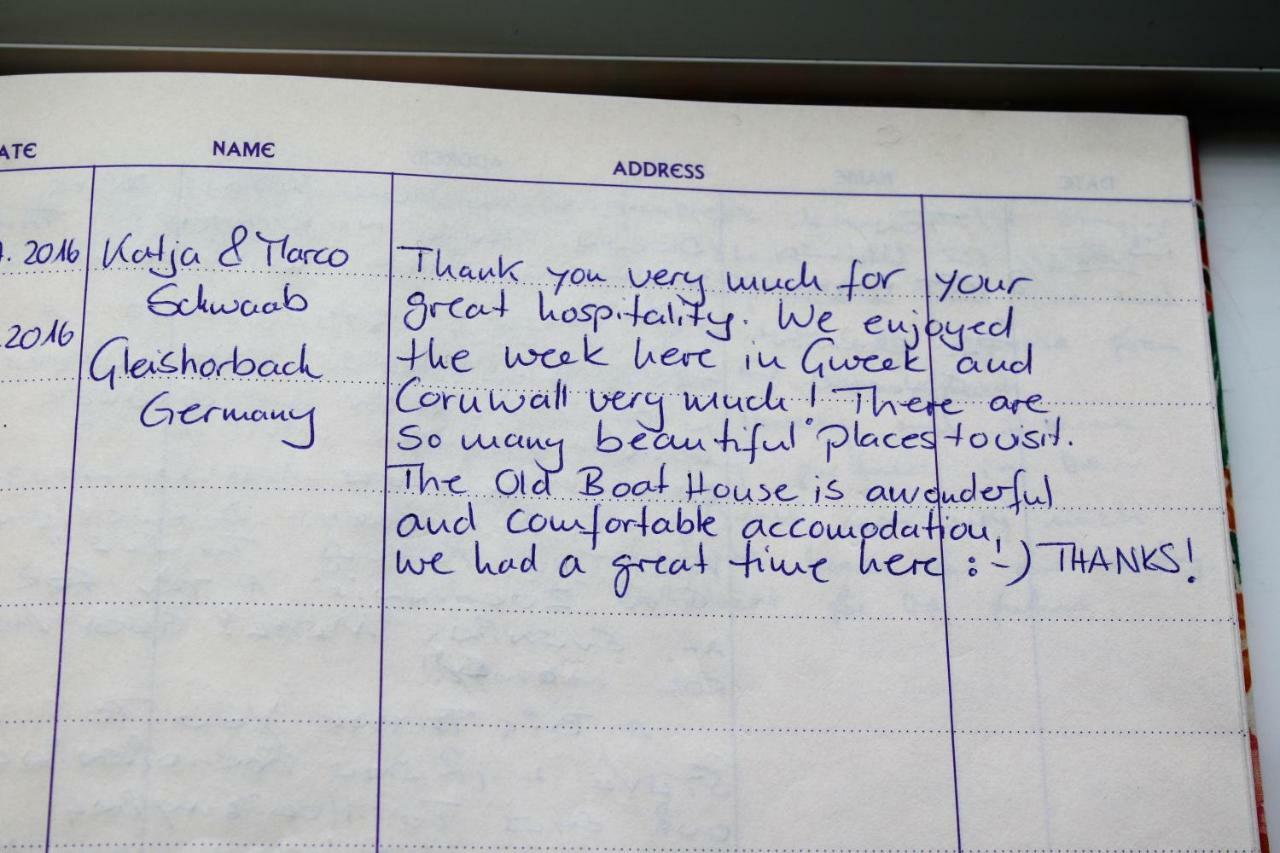 ATE NAME ADDRESS
. 2016 Katja & Marco
Schwaab
.2016
Gleishorbach
Germany
Thank you very much for your
great hospitality. We enjoyed
the week here in Gweek and
Cornwall very much! There are
so many beautiful places to visit.
The Old Boat House is a wonderful
and comfortable accomodation,
we had a great time here :-) THANKS!